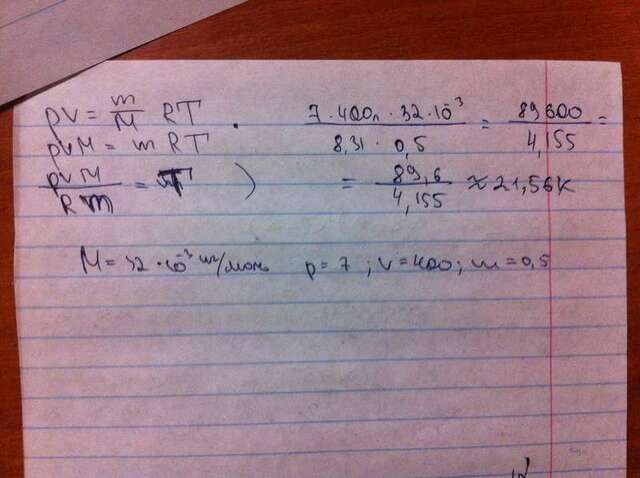 pV = m/M RT
pVM = mRT
pVM/Rm = T
7·400·32·10⁻³/8,31·0,5 = 89,600/4,155 =
= 89,6/4,155 ≈ 21,56 K
M = 32·10⁻³ кг/моль p = 7; V = 400; m = 0,5